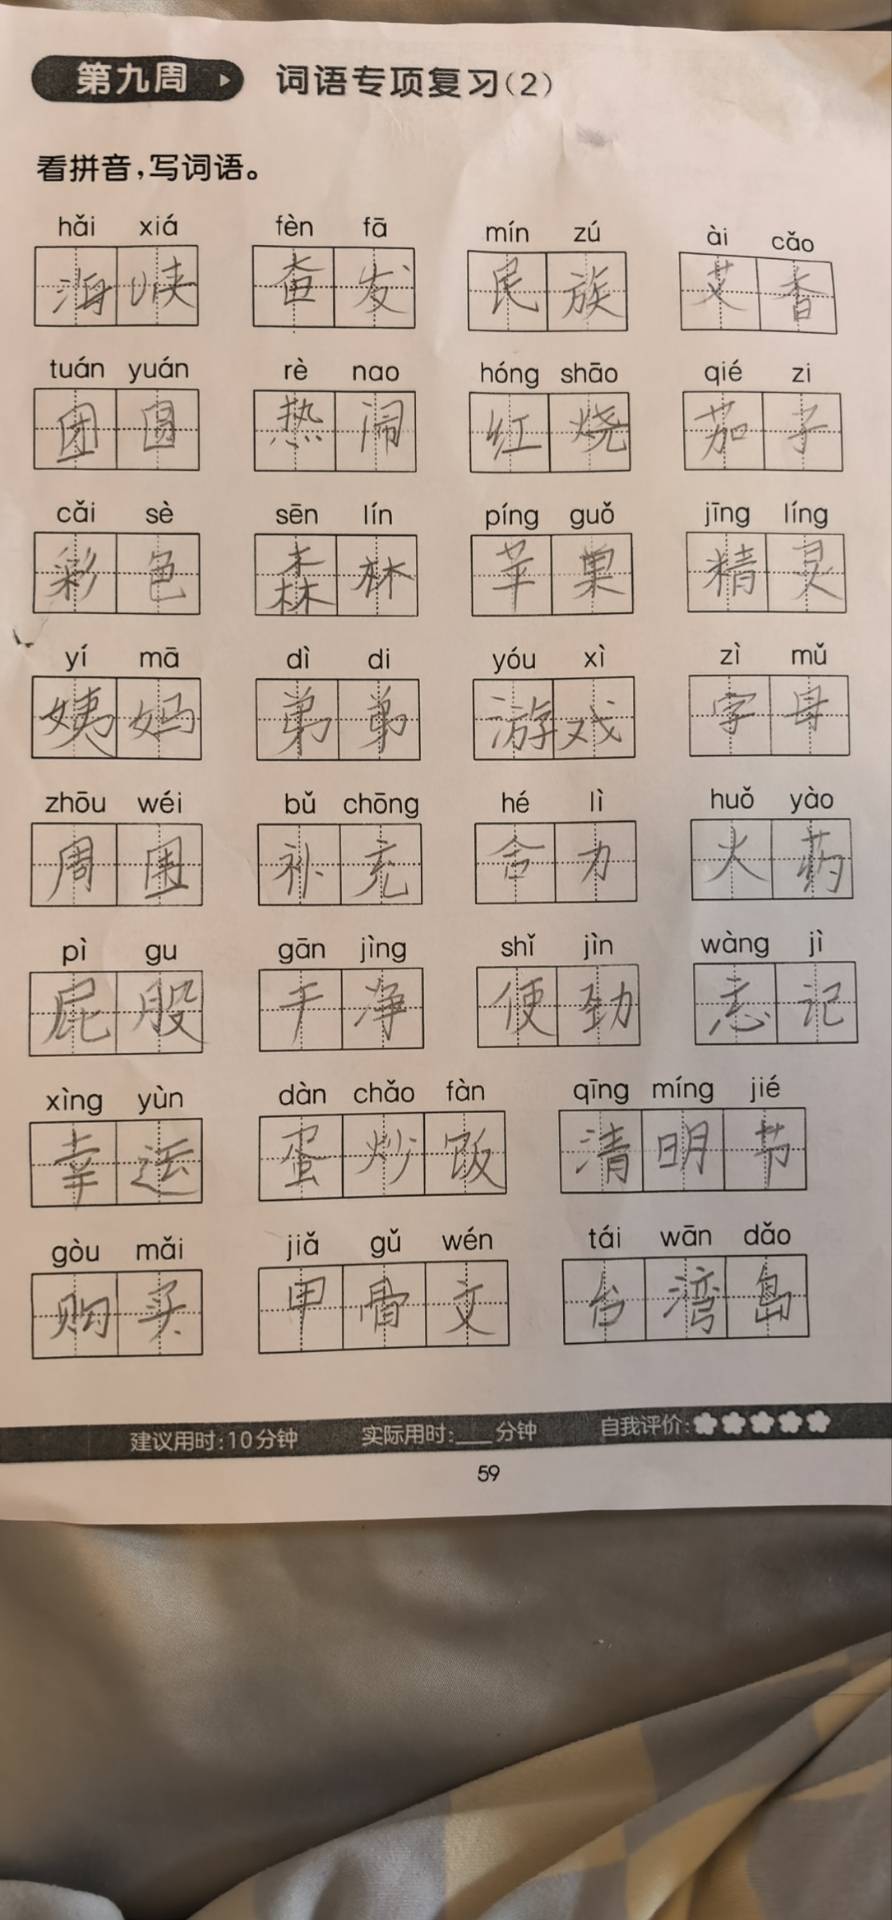 第九周 词语专项复习(2)
看拼音,写词语。
hǎi xiá fèn fā mín zú ài cǎo
海峡 奋发 民族 艾香
tuán yuán rè nao hóng shāo qié zi
团圆 热闹 红烧 茄子
cǎi sè sēn lín píng guǒ jīng líng
彩色 森林 苹果 精灵
yí mā dì di yóu xì zì mǔ
姨妈 弟弟 游戏 字母
zhōu wéi bǔ chōng hé lì huǒ yào
周围 补充 合力 火药
pì gu gān jìng shǐ jìn wàng jì
屁股 干净 使劲 忘记
xìng yùn dàn chǎo fàn qīng míng jié
幸运 蛋炒饭 清明节
gòu mǎi jiǎ gǔ wén tái wān dǎo
购买 甲骨文 台湾岛
建议用时:10分钟 实际用时:___分钟 自我评价:
59